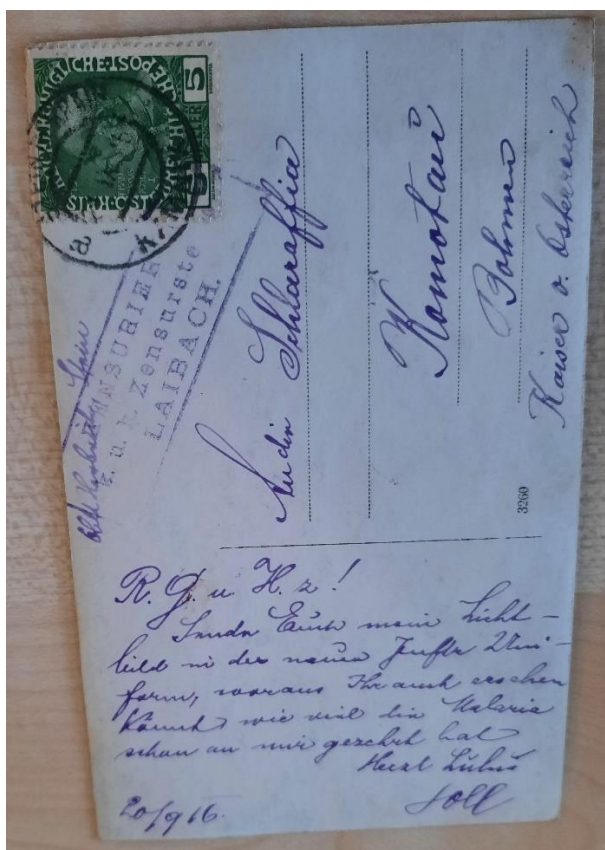 5
ENSURIER
k. u. k. Zensurste
LAIBACH.
An die Schlaraffia
Komotau
Böhmen
Kaiser v. Österreich
3260
R. G. u. H. z!
Sende Euch mein Licht-
bild in der neuen Uni-
form, woraus Ihr auch ersehen
könnt wie viel die Malaria
schon an mir gezehrt hat
Herzl Lulu
20/9 16.